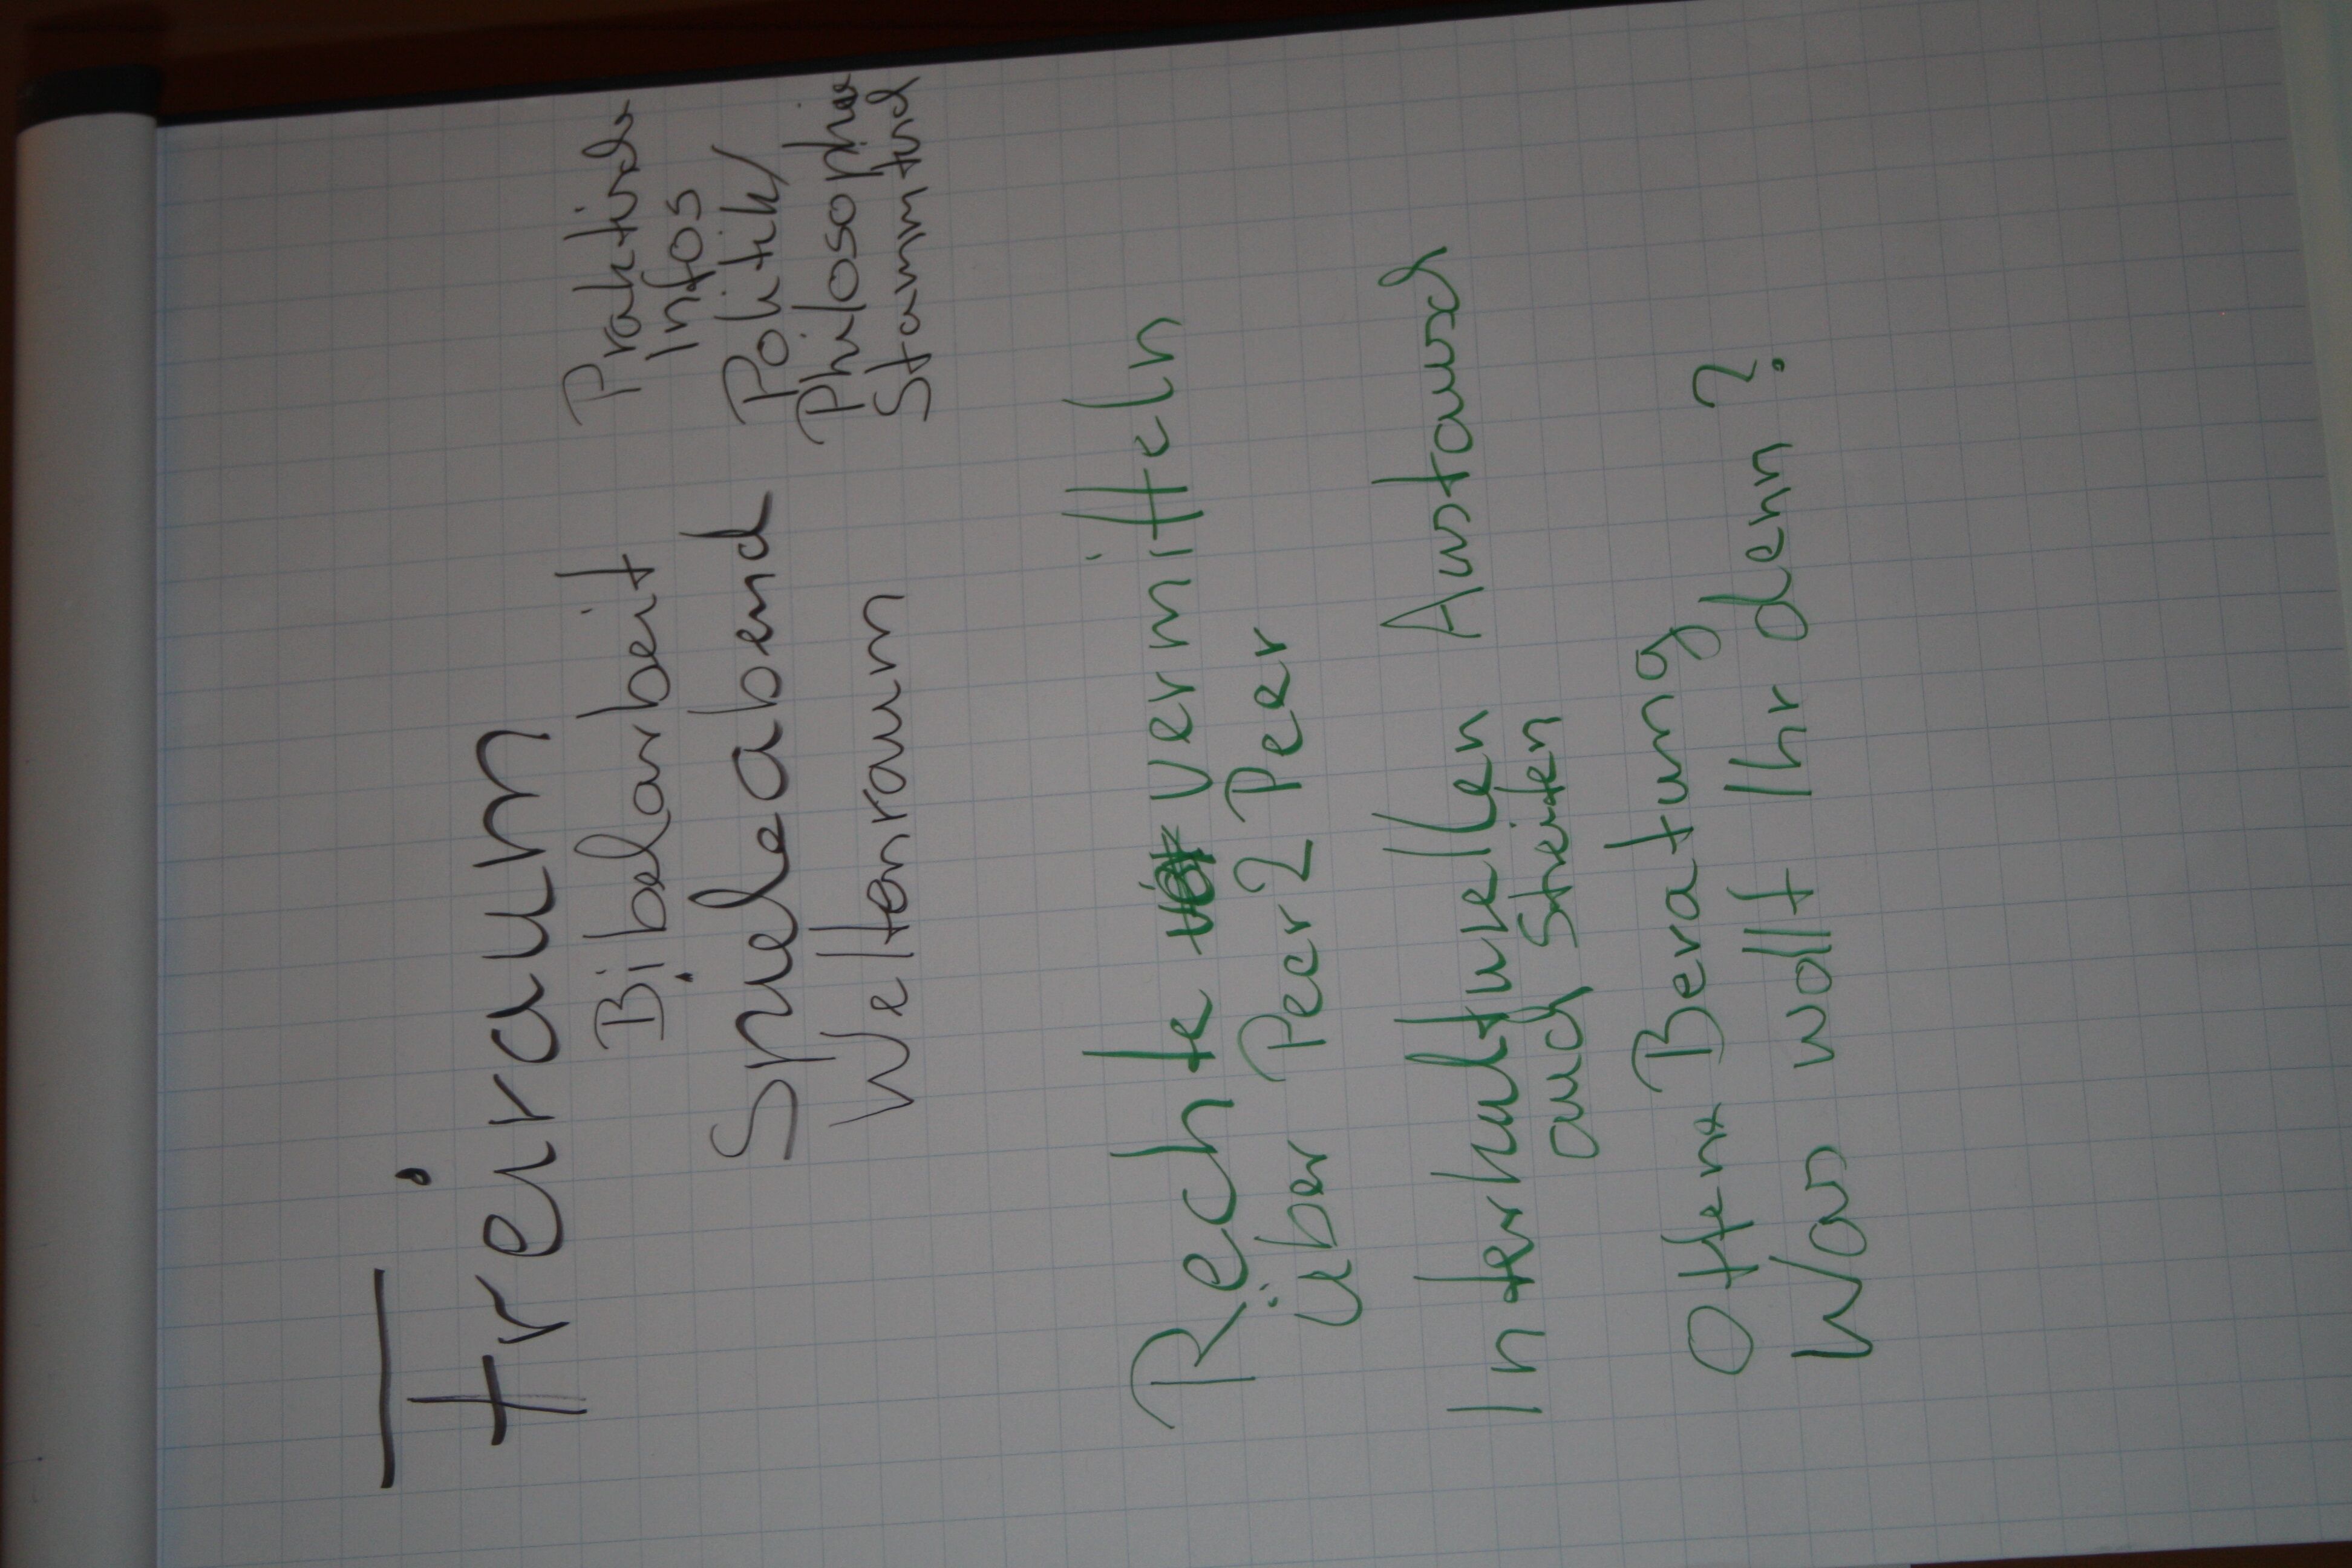 Freiraum
Bibelarbeit
Spieleabend
Weltenraum
Praktische
Infos
Politik/
Philosophie
Stammtisch
Rechte vermitteln
über Peer 2 Peer
Interkulturellen Austausch
auch Streiten
Offene Beratung
Was wollt Ihr denn?